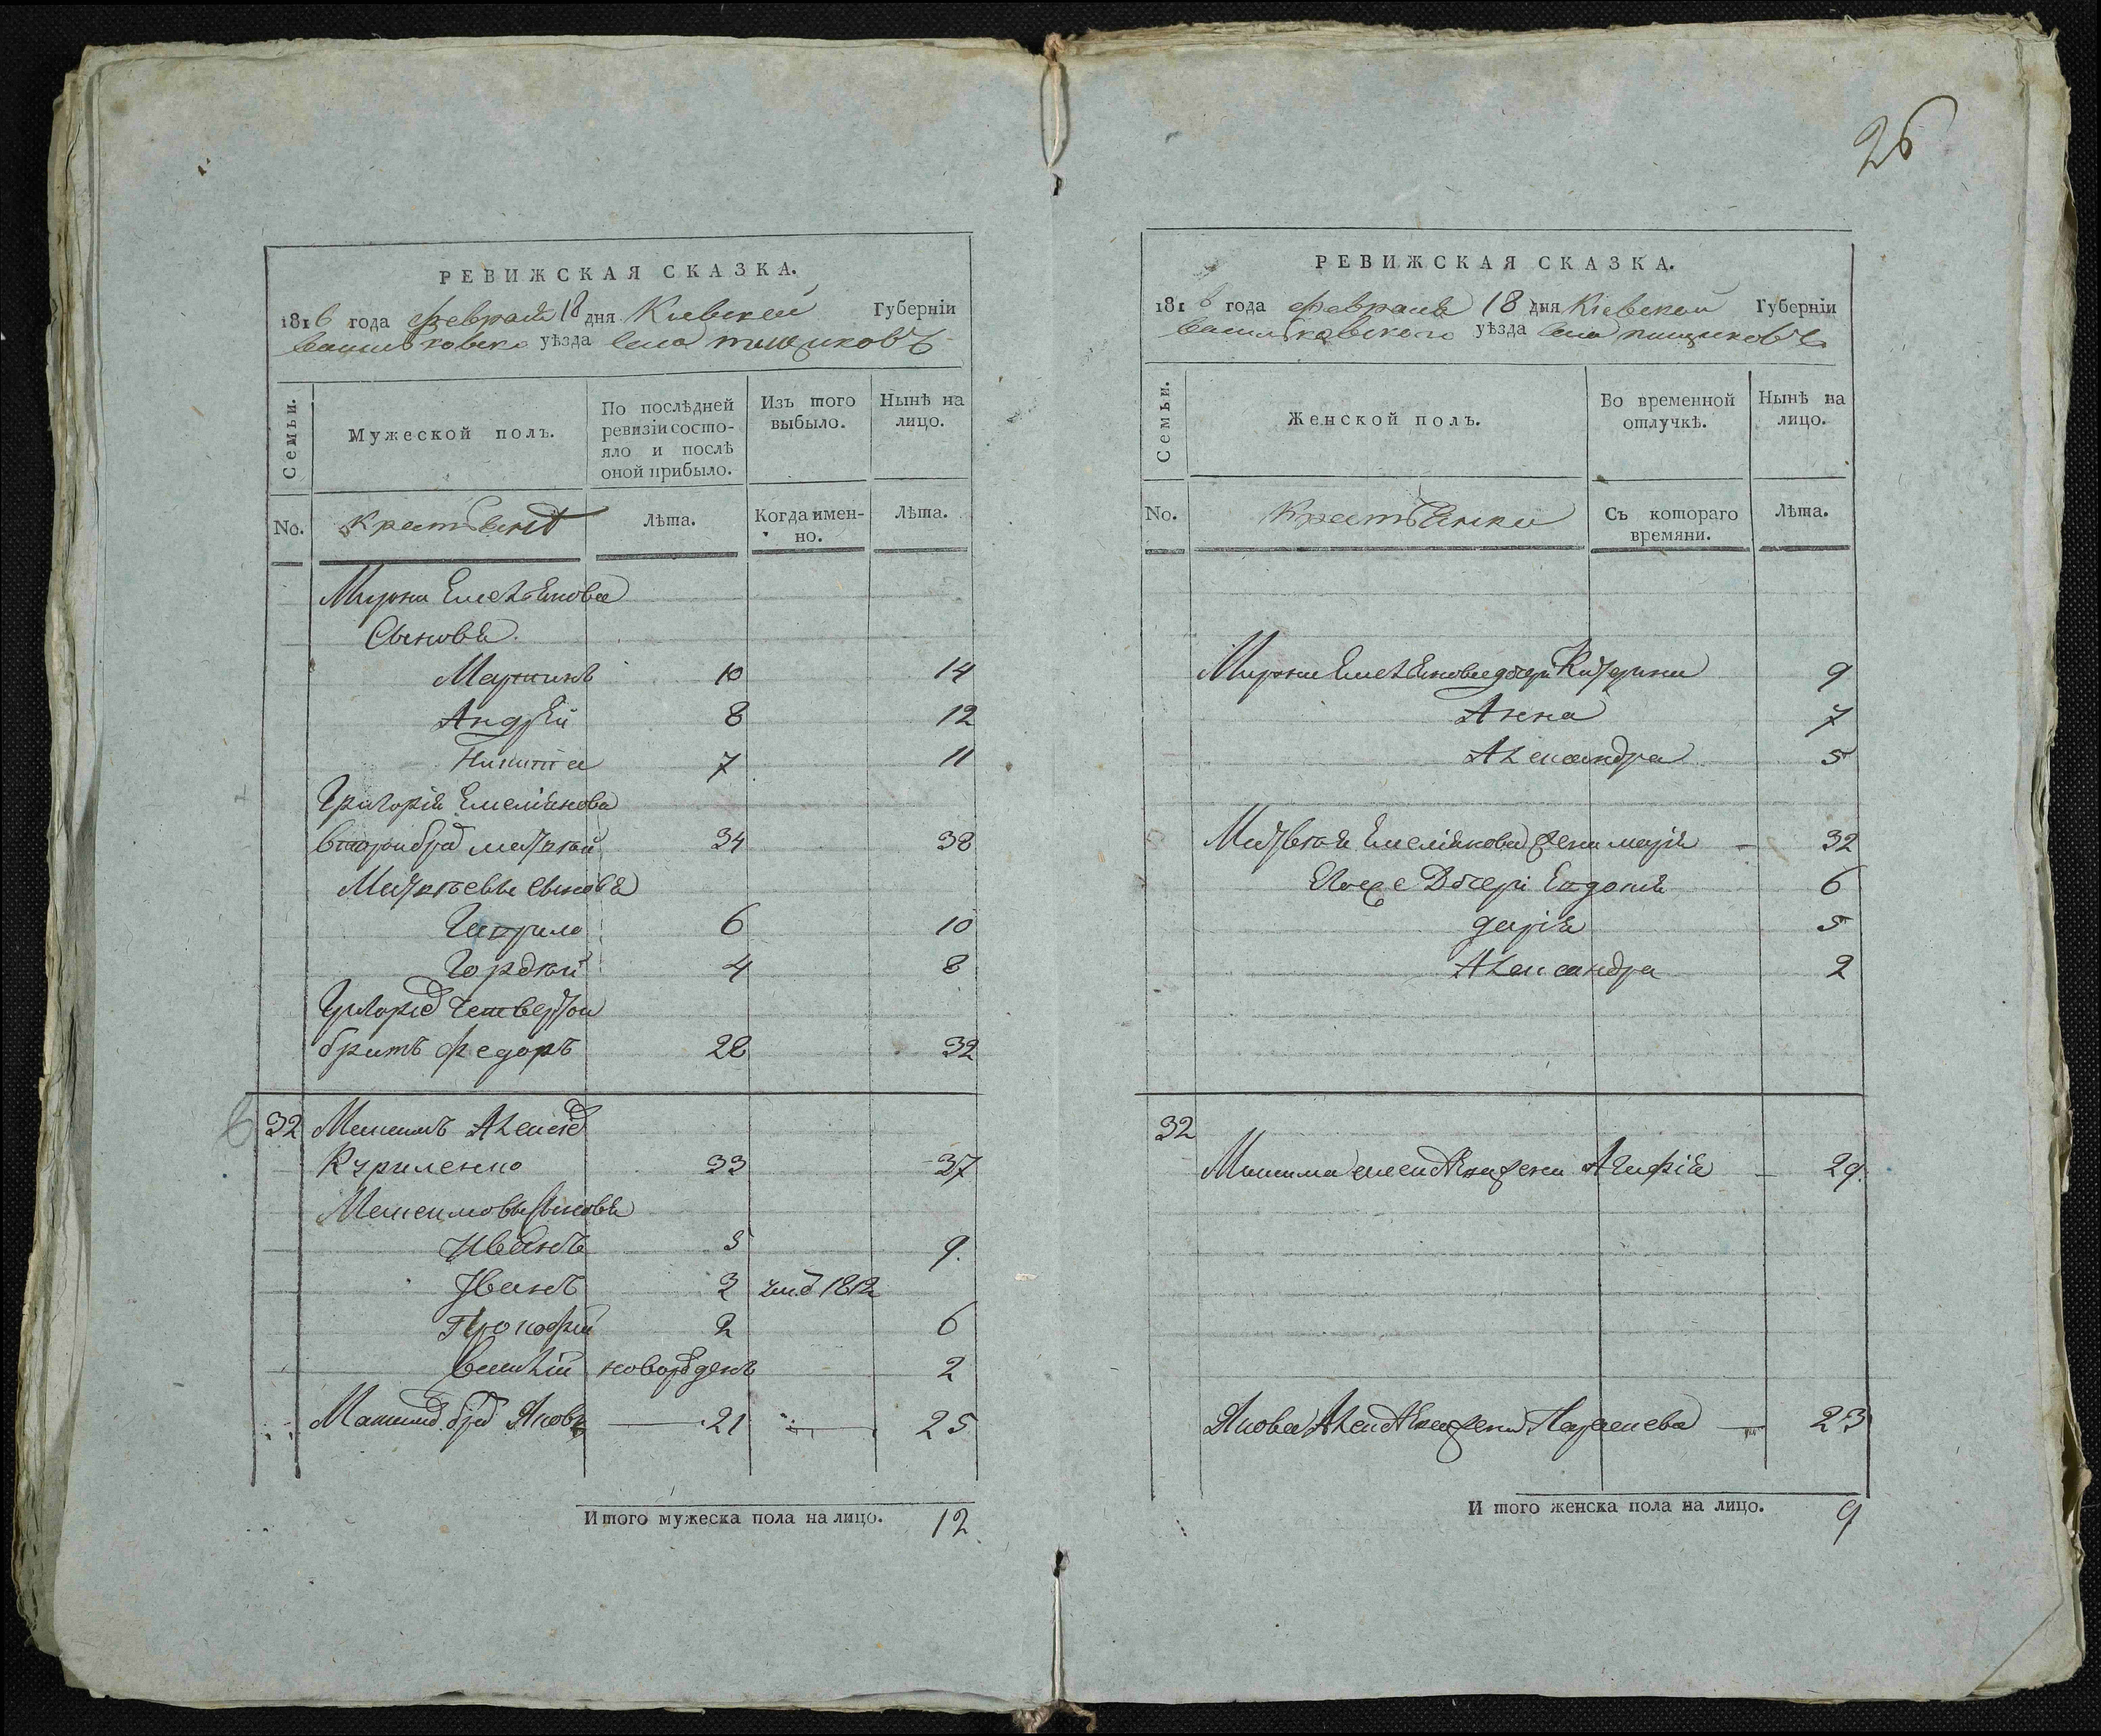 26
РЕВИЖСКАЯ СКАЗКА.
1816 года февраля 18 дня Киевской Губерніи
Васильковско уѣзда Села пищиковъ
Семьи.
Мужеской полъ.
По послѣдней ревизіи состо-
яло и послѣ
оной прибыло.
Изъ того
выбыло.
Нынѣ на
лицо.
No.
крестьянѣ
Лѣта.
Когда имен-
но.
Лѣта.
Мирона Емельянова
Сыновя
Мартинъ 10 14
Андрѣй 8 12
Никита 7 11
Григорія Емеліянова
вторай брат матвѣй 34 38
Матвѣевы сыновя
Гаврило 6 10
Гордѣй 4 8
Григорія четвертой
братъ федоръ 28 32
32 Максимъ Алексіев
Куриленко 33 37
Максимовы сыновя
Иванъ 5 9
Иванъ 3 1812
Прокофий 2 6
Василій новорожденъ 2
Максима брат Яковъ 21 25
Итого мужеска пола на лицо. 12
РЕВИЖСКАЯ СКАЗКА.
1816 года февраля 18 дня Кіевской Губерніи
Васильковского уѣзда Села пищиковъ
Семьи.
Женской полъ.
Во временной
отлучкѣ.
Нынѣ на
лицо.
No.
Крестьянки
Съ котораго
времяни.
Лѣта.
Мирона Емельянова дочери Катерина 9
Анна 7
Александра 5
Матвѣя Емеліянова жена марія 32
Егоже Дочери Евдокия 6
дарія 5
Александра 2
32
Максима Алексѣева жена Агафія 29
Якова Алексѣева жена Параскева 23
И того женска пола на лицо. 9